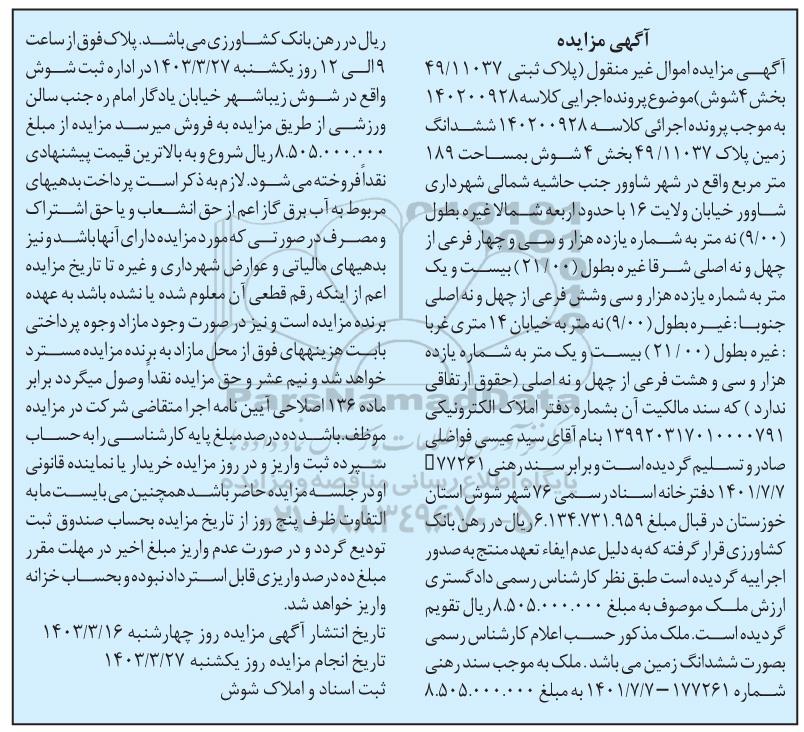 آگهی مزایده
آگهـی مزایده اموال غیر منقول (پلاک ثبتی ۴۹/۱۱۰۳۷
بخش ۴ شوش) موضوع پرونده اجرایی کلاسه ۱۴۰۲۰۰۹۲۸
به موجب پرونده اجرائی کلاسه ۱۴۰۲۰۰۹۲۸ ششدانگ
زمین پلاک ۴۹/۱۱۰۳۷ بخش ۴ شوش بمساحت ۱۸۹
متر مربع واقع در شهر شاوور جنب حاشیه شمالی شهرداری
شاوور خیابان ولایت ۱۶ با حدود اربعه شمالا غیره بطول
(۹/۰۰) نه متر به شماره یازده هزار و سی و چهار فرعی از
چهل و نه اصلی شرقا غیره بطول (۲۱/۰۰) بیست و یک
متر به شماره یازده هزار و سی وشش فرعی از چهل و نه اصلی
جنوبا : غیره بطول (۹/۰۰) نه متر به خیابان ۱۴ متری غربا
: غیره بطول (۲۱/۰۰) بیست و یک متر به شماره یازده
هزار و سی و هشت فرعی از چهل و نه اصلی (حقوق ارتفاقی
ندارد ) که سند مالکیت آن بشماره دفتر املاک الکترونیکی
۱۳۹۹۲۰۳۱۷۰۱۰۰۰۰۷۹۱ بنام آقای سید عیسی فواضلی
صادر و تسلیم گردیده است و برابر سند رهنی ۷۷۲۶۱
۱۴۰۱/۷/۷ دفترخانه اسناد رسمی ۷۶ شهر شوش استان
خوزستان در قبال مبلغ ۶.۱۳۴.۷۳۱.۹۵۹ ریال در رهن بانک
کشاورزی قرار گرفته که به دلیل عدم ایفاء تعهد منتج به صدور
اجراییه گردیده است طبق نظر کارشناس رسمی دادگستری
ارزش ملک موصوف به مبلغ ۸.۵۰۵.۰۰۰.۰۰۰ ریال تقویم
گردیده است. ملک مذکور حسب اعلام کارشناس رسمی
بصورت ششدانگ زمین می باشد . ملک به موجب سند رهنی
شماره ۱۷۷۲۶۱ – ۱۴۰۱/۷/۷ به مبلغ ۸.۵۰۵.۰۰۰.۰۰۰
ریال در رهن بانک کشاورزی می باشد. پلاک فوق از ساعت
۹ الی ۱۲ روز یکشنبه ۱۴۰۳/۳/۲۷ در اداره ثبت شوش
واقع در شوش زیباشهر خیابان یادگار امام ره جنب سالن
ورزشی از طریق مزایده به فروش میرسد مزایده از مبلغ
۸.۵۰۵.۰۰۰.۰۰۰ ریال شروع و به بالاترین قیمت پیشنهادی
نقداً فروخته می شود. لازم به ذکر است پرداخت بدهیهای
مربوط به آب برق گاز اعم از حق انشعاب و یا حق اشتراک
و مصرف در صورتی که مورد مزایده دارای آنها باشد و نیز
بدهیهای مالیاتی و عوارض شهرداری و غیره تا تاریخ مزایده
اعم از اینکه رقم قطعی آن معلوم شده یا نشده باشد به عهده
برنده مزایده است و نیز در صورت وجود مازاد وجوه پرداختی
بابت هزینههای فوق از محل مازاد به برنده مزایده مسترد
خواهد شد و نیم عشر و حق مزایده نقداً وصول میگردد برابر
ماده ۱۳۶ اصلاحی آیین نامه اجرا متقاضی شرکت در مزایده
موظف باشد ده درصد مبلغ پایه کارشناسی را به حساب
سپرده ثبت واریز و در روز مزایده خریدار یا نماینده قانونی
او در جلسه مزایده حاضر باشد همچنین می بایست مابه
التفاوت ظرف پنج روز از تاریخ مزایده بحساب صندوق ثبت
تودیع گردد و در صورت عدم واریز مبلغ اخیر در مهلت مقرر
مبلغ ده درصد واریزی قابل استرداد نبوده و بحساب خزانه
واریز خواهد شد.
تاریخ انتشار آگهی مزایده روز چهارشنبه ۱۴۰۳/۳/۱۶
تاریخ انجام مزایده روز یکشنبه ۱۴۰۳/۳/۲۷
ثبت اسناد و املاک شوش
ParsNamadData
پایگاه اطلاع رسانی مناقصه و مزایده